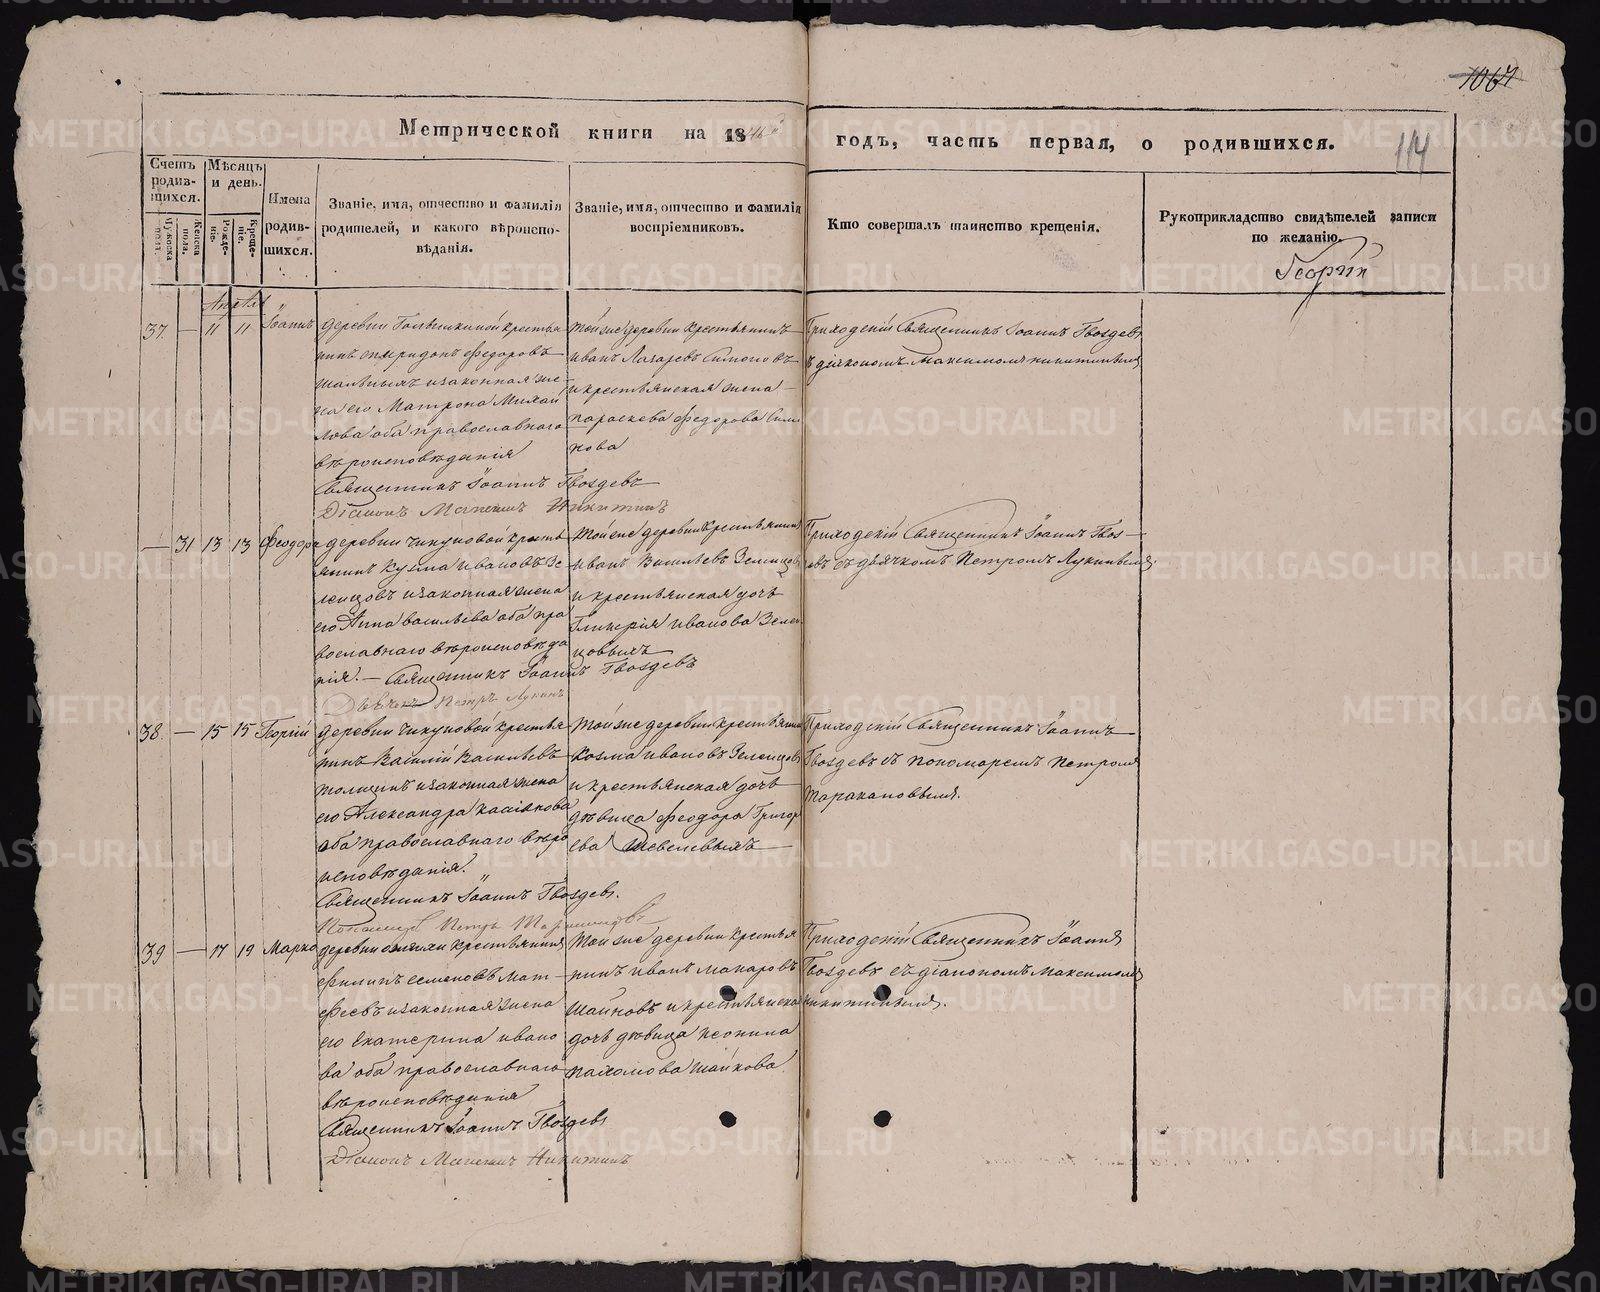 1067
Метрической книги на 1846 годъ, часть первая, о родившихся.
114
Счетъ родив-шихся.
Мужеска пола.
Женска пола.
Мѣсяцъ и день.
Рожде-нія.
Креще-ніе.
Имена родив-шихся.
Званіе, имя, отчество и фамилія
родителей, и какого вѣроиспо-
вѣданія.
Званіе, имя, отчество и фамилія
воспріемниковъ.
Кто совершалъ таинство крещенія.
Рукоприкладство свидѣтелей записи
по желанію.
Георгій
Апрѣля
37. — 11 11 Іоаннъ
деревни крестья
нинъ Спиридонъ Федоровъ
и законная же-
на его Матрона Михай
лова оба православнаго
вѣроисповѣданія
Священникъ Іоаннъ Гвоздевъ
Діаконъ Максимъ Никитинъ
тойже деревни крестьянинъ
иванъ Лазаревъ Симоновъ
и крестьянская жена
параскева Федорова Симо
нова
Приходскій Священникъ Іоаннъ Гвоздевъ
съ діакономъ Максимомъ никитинымъ
— 31 13 13 Феодора
деревни Чикуновой кресть
янинъ Кузма ивановъ Зе
ленцовъ и законная жена
его Анна васильева оба пра
вославнаго вѣроисповѣда
нія. — Священникъ Іоаннъ Гвоздевъ
Дьячекъ Петръ Лукинъ
Тойже деревни Крестьянинъ
иванъ Васильевъ Зеленцовъ
и крестьянская дочь
Гликерія иванова Зелен
цовыхъ
Приходскій Священникъ Іоаннъ Гвоз-
девъ съ дьячкомъ Петромъ Лукинымъ.
38. — 15 15 Георгій
деревни Чикуновой крестья
нинъ Василій Васильевъ
и законная жена
его Александра касіянова
оба православнаго вѣро
исповѣданія.
Священникъ Іоаннъ Гвоздевъ.
Пономарь Петръ Таракановъ
Тойже деревни крестьянинъ
Козма ивановъ Зеленцовъ
и крестьянская дочь
дѣвица Феодора Григорь
ева Шевелевыхъ
Приходскій Священникъ Іоаннъ
Гвоздевъ съ пономаремъ Петромъ
Таракановымъ.
39 — 17 19 Марко
деревни крестьянинъ
Филипъ семеновъ Мат-
феевъ и законная жена
его Екатерина ивано
ва оба православнаго
вѣроисповѣданія
Священникъ Іоаннъ Гвоздевъ
Діаконъ Максимъ Никитинъ
Тойже деревни крестья
нинъ иванъ макаровъ
Шайковъ и крестьянская
дочь дѣвица неонила
пахомова Шайкова
Приходскій Священникъ Іоаннъ
Гвоздевъ съ діакономъ Максимомъ
никитинымъ.
METRIKI.GASO-URAL.RU